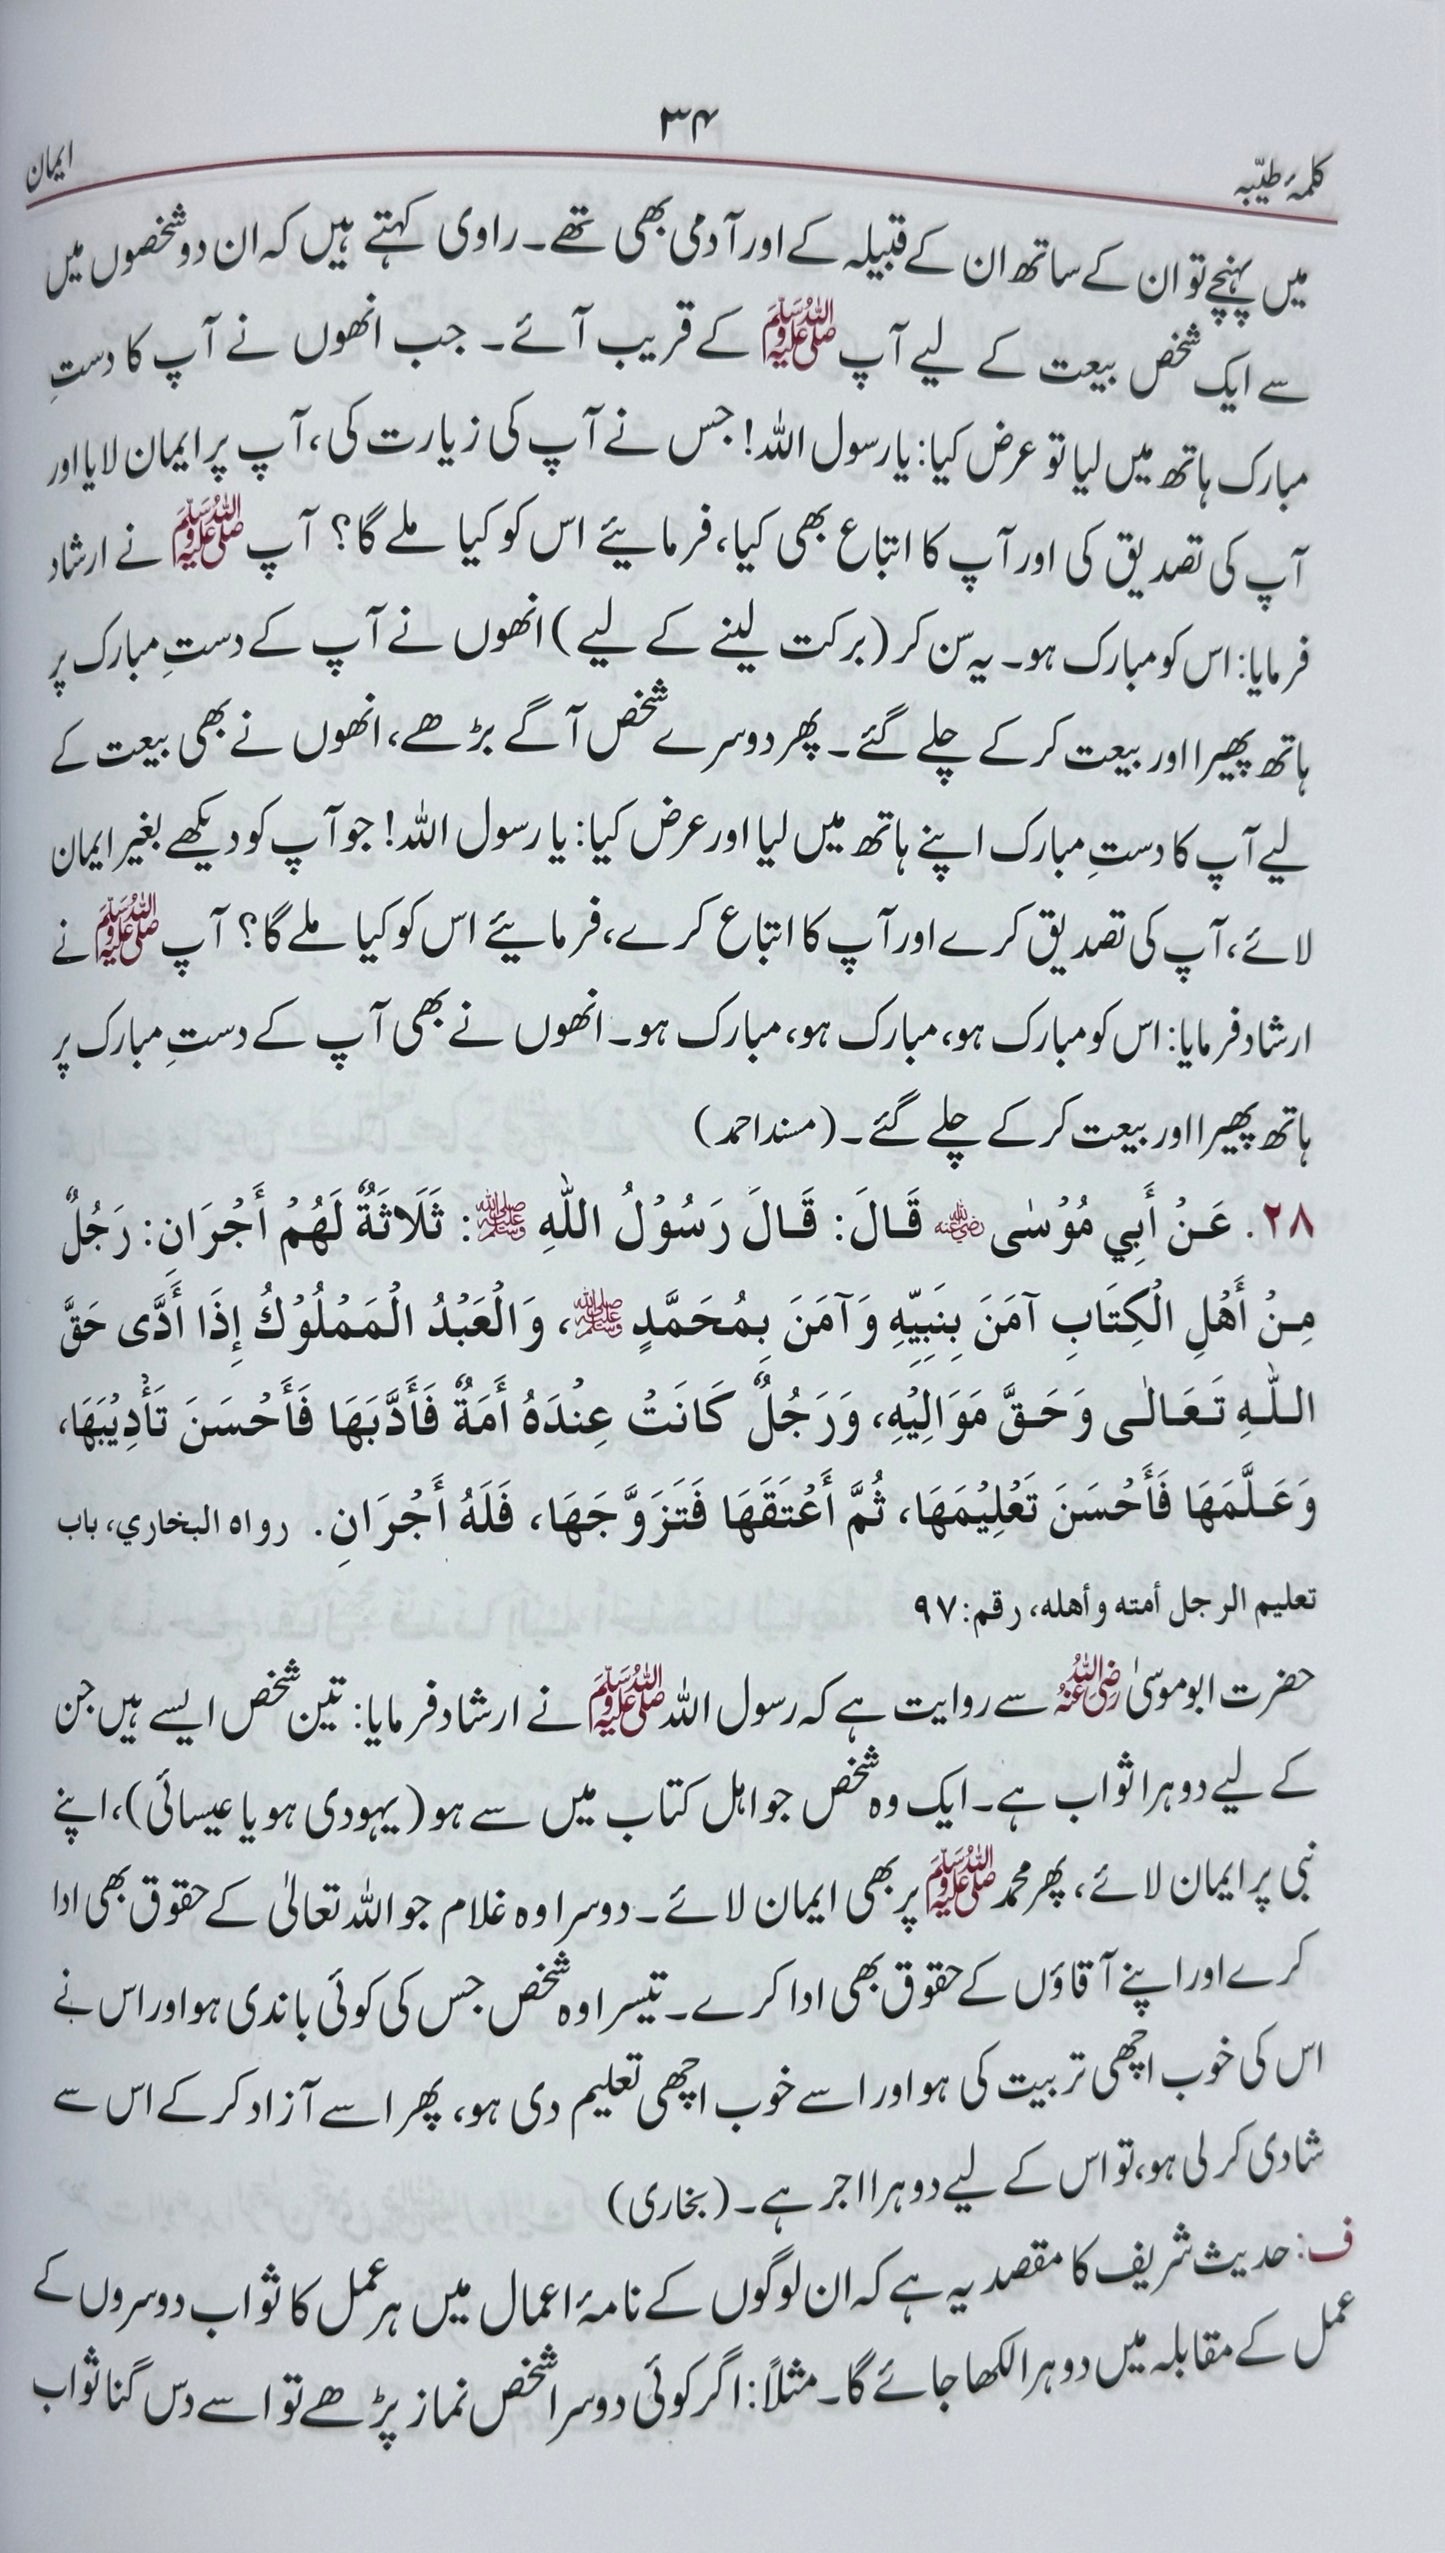 ۳۴
کلمۂ طیّبہ
ایمان
میں پہنچے تو ان کے ساتھ ان کے قبیلہ کے اور آدمی بھی تھے۔ راوی کہتے ہیں کہ ان دو شخصوں میں
سے ایک شخص بیعت کے لیے آپ ﷺ کے قریب آئے۔ جب انھوں نے آپ کا دستِ
مبارک ہاتھ میں لیا تو عرض کیا: یا رسول اللہ! جس نے آپ کی زیارت کی، آپ پر ایمان لایا اور
آپ کی تصدیق کی اور آپ کا اتباع بھی کیا، فرمائیے اس کو کیا ملے گا؟ آپ ﷺ نے ارشاد
فرمایا: اس کو مبارک ہو۔ یہ سن کر (برکت لینے کے لیے) انھوں نے آپ کے دستِ مبارک پر
ہاتھ پھیرا اور بیعت کر کے چلے گئے۔ پھر دوسرے شخص آگے بڑھے، انھوں نے بھی بیعت کے
لیے آپ کا دستِ مبارک اپنے ہاتھ میں لیا اور عرض کیا: یا رسول اللہ! جو آپ کو دیکھے بغیر ایمان
لائے، آپ کی تصدیق کرے اور آپ کا اتباع کرے، فرمائیے اس کو کیا ملے گا؟ آپ ﷺ نے
ارشاد فرمایا: اس کو مبارک ہو، مبارک ہو، مبارک ہو۔ انھوں نے بھی آپ کے دستِ مبارک پر
ہاتھ پھیرا اور بیعت کر کے چلے گئے۔ (مسند احمد)
۲۸. عَنْ أَبِي مُوْسٰى رضي الله عنه قَالَ: قَالَ رَسُوْلُ اللّٰهِ ﷺ: ثَلَاثَةٌ لَهُمْ أَجْرَانِ: رَجُلٌ
مِنْ أَهْلِ الْكِتَابِ آمَنَ بِنَبِيِّهِ وَآمَنَ بِمُحَمَّدٍ ﷺ، وَالْعَبْدُ الْمَمْلُوْكُ إِذَا أَدَّى حَقَّ
اللّٰهِ تَعَالٰى وَحَقَّ مَوَالِيْهِ، وَرَجُلٌ كَانَتْ عِنْدَهُ أَمَةٌ فَأَدَّبَهَا فَأَحْسَنَ تَأْدِيْبَهَا،
وَعَلَّمَهَا فَأَحْسَنَ تَعْلِيْمَهَا، ثُمَّ أَعْتَقَهَا فَتَزَوَّجَهَا، فَلَهُ أَجْرَانِ. رواه البخاري، باب
تعليم الرجل أمته وأهله، رقم: ۹۷
حضرت ابو موسیٰ رضی اللہ عنہ سے روایت ہے کہ رسول اللہ ﷺ نے ارشاد فرمایا: تین شخص ایسے ہیں جن
کے لیے دوہرا ثواب ہے۔ ایک وہ شخص جو اہل کتاب میں سے ہو (یہودی ہو یا عیسائی)، اپنے
نبی پر ایمان لائے، پھر محمد ﷺ پر بھی ایمان لائے۔ دوسرا وہ غلام جو اللہ تعالیٰ کے حقوق بھی ادا
کرے اور اپنے آقاؤں کے حقوق بھی ادا کرے۔ تیسرا وہ شخص جس کی کوئی باندی ہو اور اس نے
اس کی خوب اچھی تربیت کی ہو اور اسے خوب اچھی تعلیم دی ہو، پھر اسے آزاد کر کے اس سے
شادی کر لی ہو، تو اس کے لیے دوہرا اجر ہے۔ (بخاری)
ف: حدیث شریف کا مقصد یہ ہے کہ ان لوگوں کے نامۂ اعمال میں ہر عمل کا ثواب دوسروں کے
عمل کے مقابلہ میں دوہرا لکھا جائے گا۔ مثلاً: اگر کوئی دوسرا شخص نماز پڑھے تو اسے دس گنا ثواب